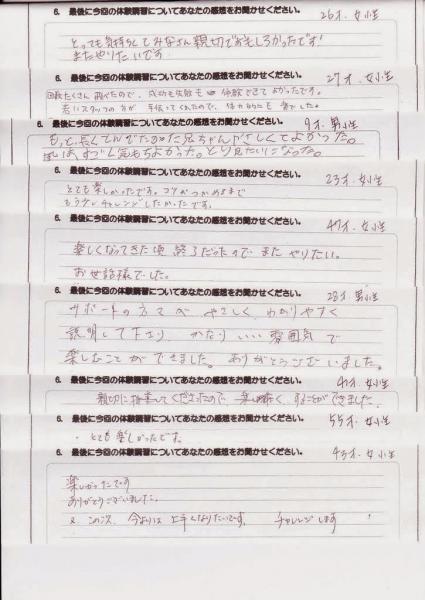 6. 最後に今回の体験講習についてあなたの感想をお聞かせください。 26才. 女性
とっても気持ちくてみなさん親切でおもしろかったです!
またやりたいです
6. 最後に今回の体験講習についてあなたの感想をお聞かせください。 27才. 女性
回数たくさん飛べたので、成功も失敗も体験できてよかったです。
若いスタッフの方が手伝ってくれたので、体力的にも楽でした。
6. 最後に今回の体験講習についてあなたの感想をお聞かせください。 9才. 男性
もっと長くてんでたかった兄ちゃんやさしくてよかった。
すごく気もちよかった。とり見たいになった。
6. 最後に今回の体験講習についてあなたの感想をお聞かせください。 23才 女性
とても楽しかったです。コツがつかめるまで
もう少しチャレンジしたかったです。
6. 最後に今回の体験講習についてあなたの感想をお聞かせください。 47才. 女性
楽しくなってきた頃 終了だったので またやりたい。
お世話様でした。
6. 最後に今回の体験講習についてあなたの感想をお聞かせください。 28才 男性
サポートの方々が やさしく、わかりやすく
説明して下さり かなりいい雰囲気で
楽しむことができました。ありがとうございました。
6. 最後に今回の体験講習についてあなたの感想をお聞かせください。 女性
親切に指導してくださったので、楽しく、することができました
6. 最後に今回の体験講習についてあなたの感想をお聞かせください。 55才. 女性
・とても楽しかったです。
6. 最後に今回の体験講習についてあなたの感想をお聞かせください。 45才. 女性
楽しかったです
ありがとうございました。
又、この次、今よりは上手くなりたいです。 チャレンジします